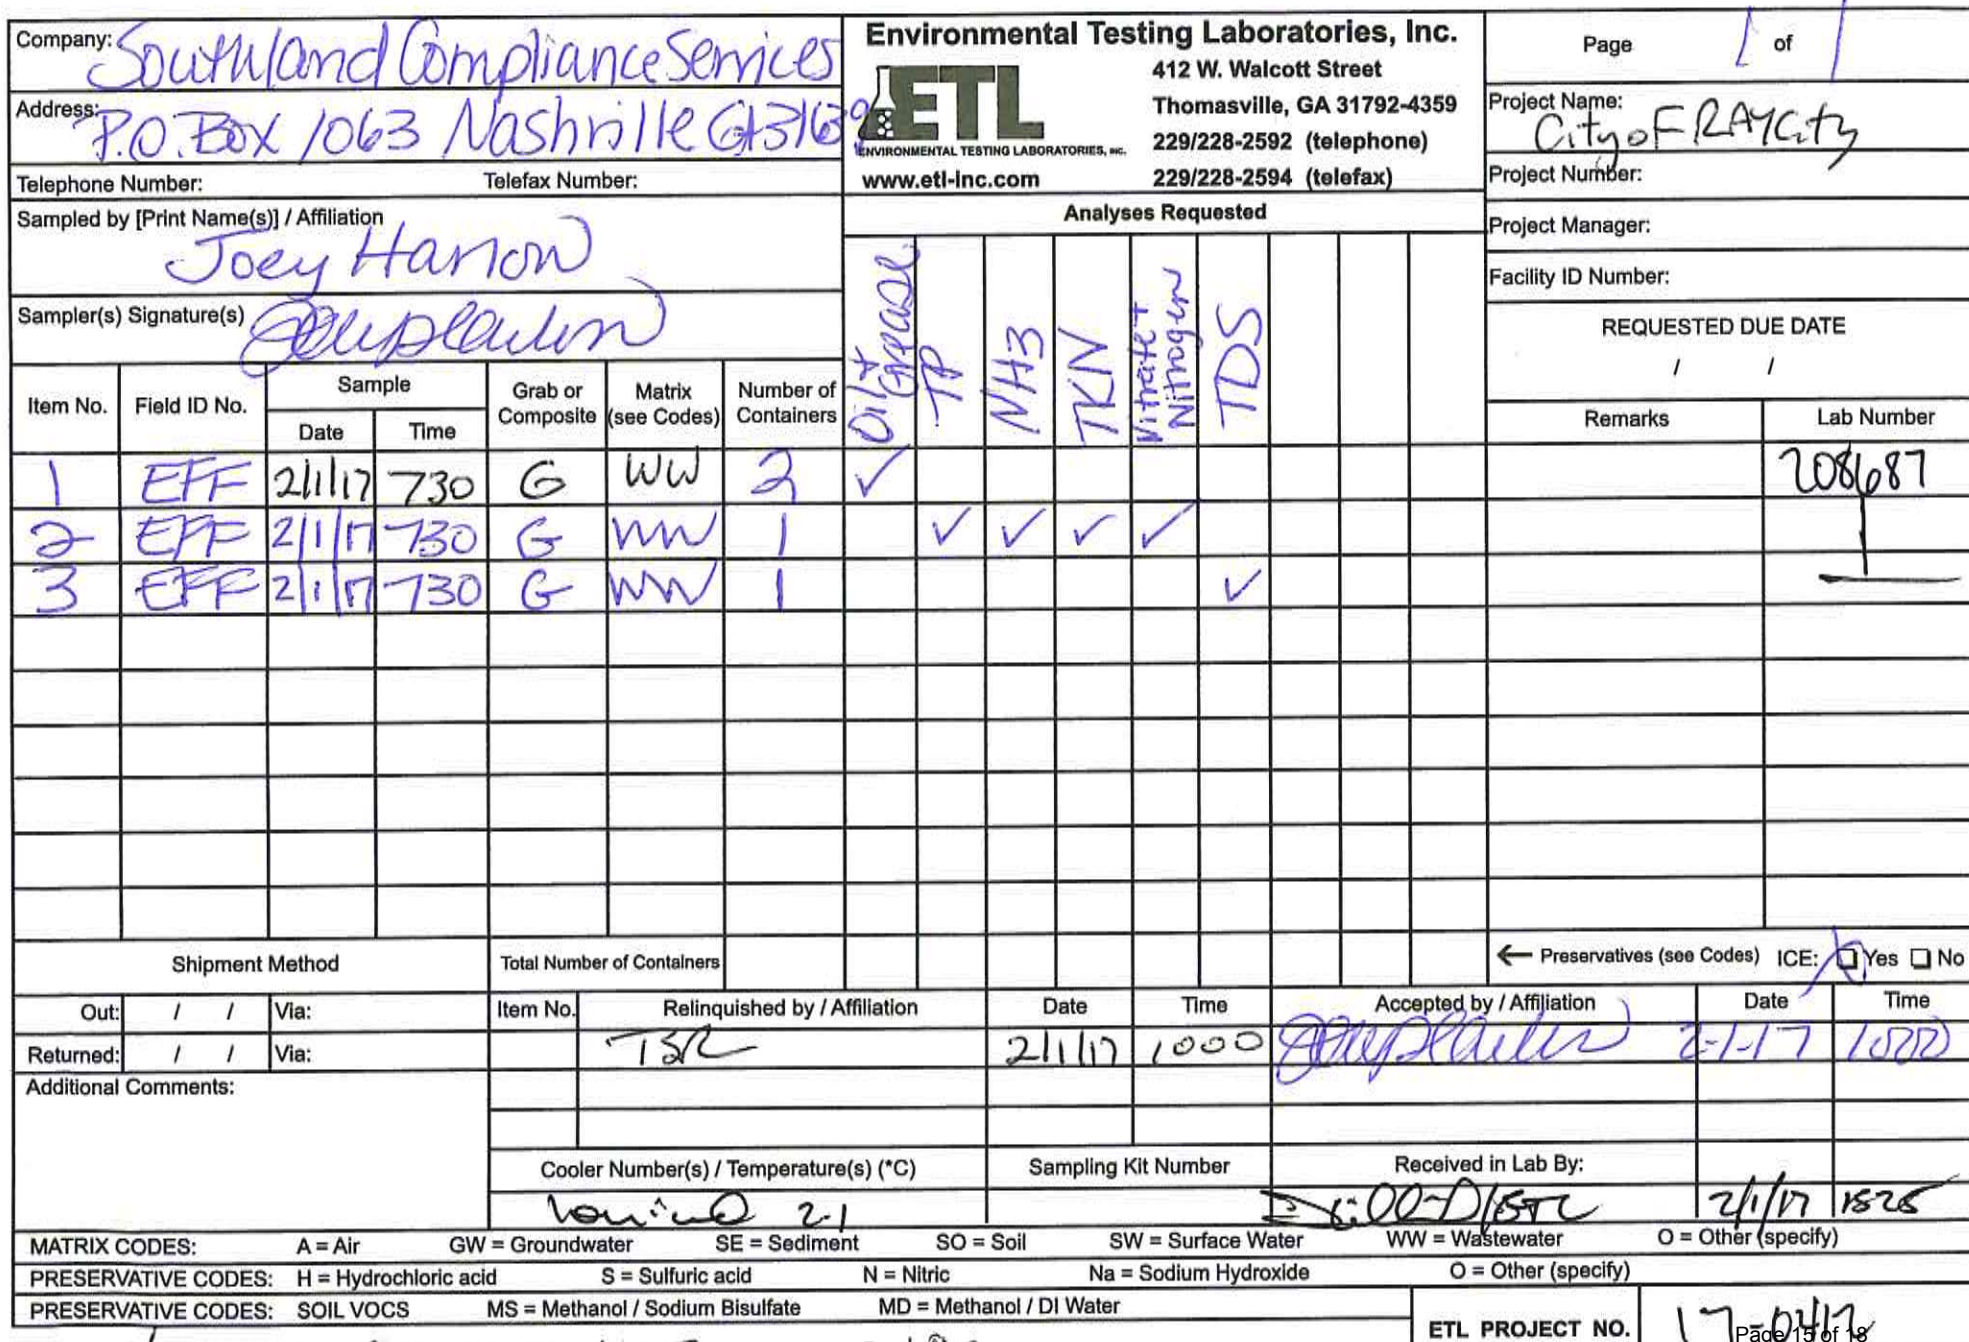 Company: Southland Compliance Services
Address: P.O. Box 1063 Nashville GA 31639
Telephone Number: Telefax Number:
Sampled by [Print Name(s)] / Affiliation
Joey Harlow
Sampler(s) Signature(s)
Environmental Testing Laboratories, Inc.
ETL
ENVIRONMENTAL TESTING LABORATORIES, INC.
www.etl-inc.com
412 W. Walcott Street
Thomasville, GA 31792-4359
229/228-2592 (telephone)
229/228-2594 (telefax)
Page 1 of 1
Project Name: City of RAY City
Project Number:
Project Manager:
Facility ID Number:
REQUESTED DUE DATE
/ /
Analyses Requested
Oil + Grease
TP
NH3
TKN
Nitrate + Nitrogen
TDS
Item No. Field ID No. Sample Date Time Grab or Composite Matrix (see Codes) Number of Containers Remarks Lab Number
1 EFF 2/1/17 730 G WW 2 ✓ 208687
2 EFF 2/1/17 730 G WW 1 ✓ ✓ ✓ ✓
3 EFF 2/1/17 730 G WW 1 ✓
Shipment Method Total Number of Containers ← Preservatives (see Codes) ICE: Yes No
Out: / / Via: Item No. Relinquished by / Affiliation Date Time Accepted by / Affiliation Date Time
Returned: / / Via: TSR 2/1/17 1000 2-1-17 1000
Additional Comments:
Cooler Number(s) / Temperature(s) (°C) Sampling Kit Number Received in Lab By:
2.1 2/1/17 1525
MATRIX CODES: A = Air GW = Groundwater SE = Sediment SO = Soil SW = Surface Water WW = Wastewater O = Other (specify)
PRESERVATIVE CODES: H = Hydrochloric acid S = Sulfuric acid N = Nitric Na = Sodium Hydroxide O = Other (specify)
PRESERVATIVE CODES: SOIL VOCS MS = Methanol / Sodium Bisulfate MD = Methanol / DI Water
ETL PROJECT NO.
Page 15 of 18